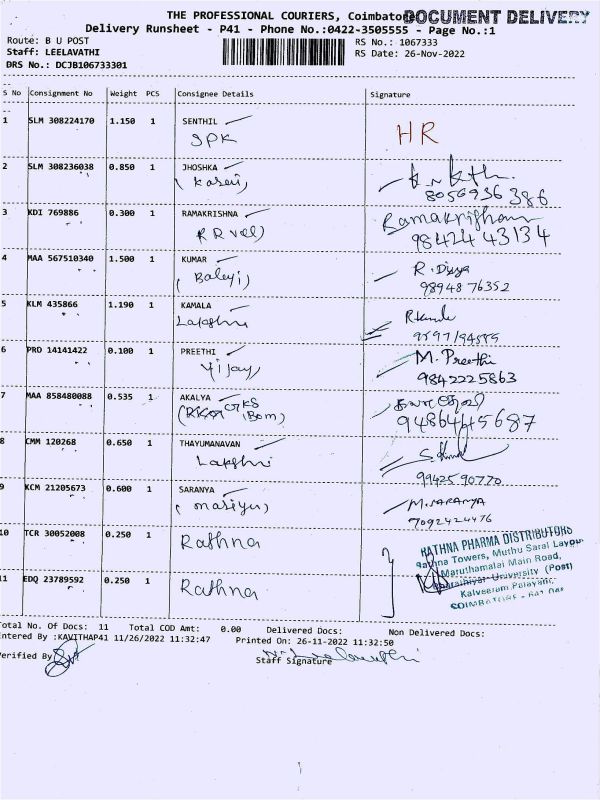 THE PROFESSIONAL COURIERS, Coimbatore
DOCUMENT DELIVERY
Delivery Runsheet - P41 - Phone No.:0422-3505555 - Page No.:1
Route: B U POST
RS No.: 1067333
Staff: LEELAVATHI
RS Date: 26-Nov-2022
DRS No.: DCJB106733301
S No Consignment No Weight PCS Consignee Details Signature
1 SLM 308224170 1.150 1 SENTHIL
SPK
HR
2 SLM 308236038 0.850 1 JHOSHKA
8056936386
3 KDI 769886 0.300 1 RAMAKRISHNA
98424 43134
4 MAA 567510340 1.500 1 KUMAR
(Balaji)
R. Divya
98948 76352
5 KLM 435866 1.190 1 KAMALA
Lakshmi
6 PRD 14141422 0.100 1 PREETHI
Vijay
M. Preethi
9842225863
7 MAA 858480088 0.535 1 AKALYA
8 CMM 120268 0.650 1 THAYUMANAVAN
Lakshmi
9942590770
9 KCM 21205673 0.600 1 SARANYA
M.SARANYA
7092424476
10 TCR 30052008 0.250 1 Rathna
11 EDQ 23789592 0.250 1 Rathna
RATHNA PHARMA DISTRIBUTORS
Rathna Towers, Muthu Saral Layout
Maruthamalai Main Road,
Bharathiyar University (Post)
Kalveeram Palayam,
COIMBATORE - 641 046
Total No. Of Docs: 11 Total COD Amt: 0.00 Delivered Docs: Non Delivered Docs:
Entered By :KAVITHAP41 11/26/2022 11:32:47 Printed On: 26-11-2022 11:32:50
Verified By
Staff Signature